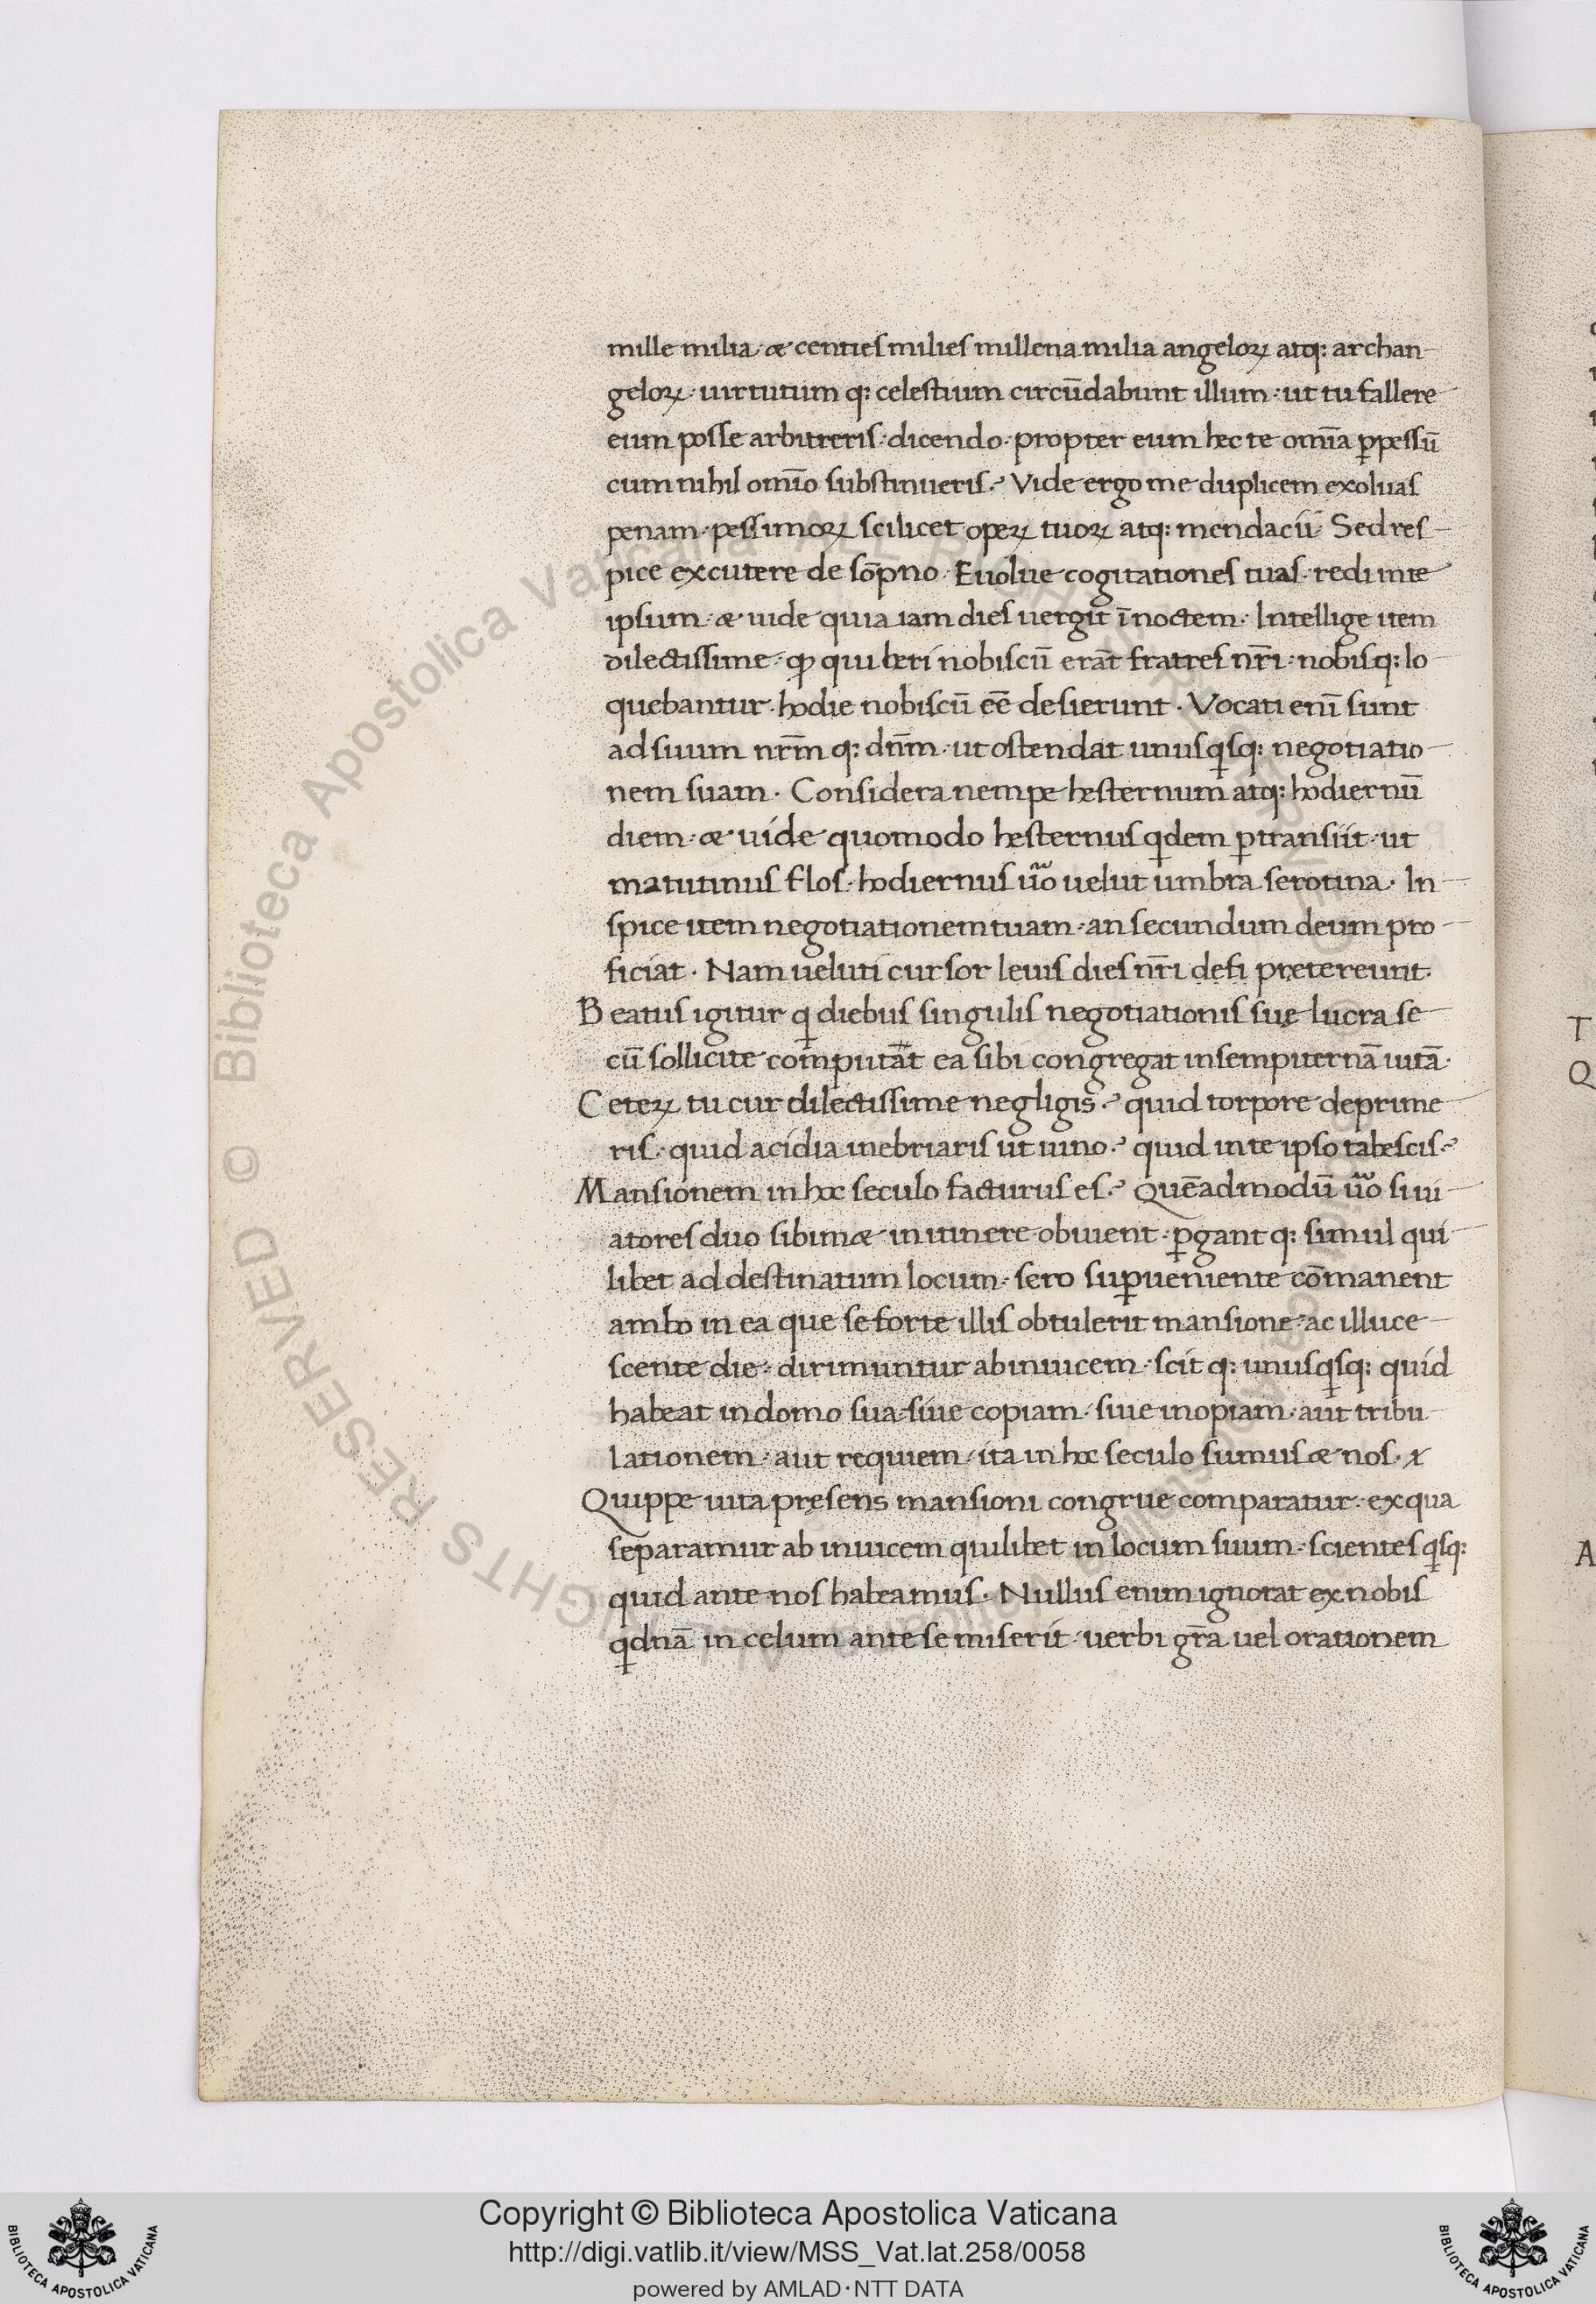 mille milia · æ centies milies millena milia angeloꝝ atq: archan-
geloꝝ · uirtutum q: celestium circūdabunt illum · ut tu fallere
eum posse arbitreris · dicendo · propter eum hec te omīa ꝑpessū
cum nihil omīo substinueris? Vide ergo me duplicem exoluas
penam · pessimoꝝ scilicet opeꝝ tuoꝝ atq: mendacii · Sed res-
pice excutere de sōpno · Euolue cogitationes tuas · redi inte
ipsum · æ uide quia iam dies uergit ī noctem · Intellige item
dilectissime · ꝙ qui heri nobiscū erāt fratres nr̄i · nobisq: lo-
quebantur · hodie nobiscū eē desierunt · Vocati enī sunt
ad suum nrm̄ q: dnm̄ · ut ostendat unusqisq: negotiatio-
nem suam · Considera nempe hesternum atq: hodiernū
diem · æ uide quomodo hesternus qidem ꝑtransiit · ut
matutinus flos · hodiernus uo uelut umbra serotina · In-
spice item negotiationem tuam · an secundum deum pro-
ficiat · Nam ueluti cursor leuis dies nr̄i defi pretereunt ·
Beatus igitur qi diebus singulis negotiationis sue lucra se-
cū sollicite computāt ea sibi congregat insempiternā uitā ·
Ceteꝝ tu cur dilectissime negligis? quid torpore deprime-
ris · quid acidia inebriaris ut uino? quid inte ipso tabescis?
Mansionem in hoc seculo facturus es? Quēadmodū uo si ui-
atores duo sibimæ in itinere obuient · ꝑgant q: simul qui-
libet ad destinatum locum · sero suꝑueniente cōmanent
ambo in ea que se forte illis obtulerit mansione · ac illuce-
scente die · dirimuntur abinuicem · scit q: unusqisq: quid
habeat in domo sua · siue copiam · siue inopiam · aut tribu-
lationem · aut requiem · ita in hoc seculo sumus æ nos ·
Quippe uita pręsens mansioni congrue comparatur · ex qua
separamur ab inuicem quilibet in locum suum · scientes qisq:
quid ante nos habeamus · Nullus enim ignorat ex nobis
qidnā in celum ante se miserit · uerbi gr̄a uel orationem
T
Q
A
© Biblioteca Apostolica Vaticana ALL RIGHTS RESERVED
Copyright © Biblioteca Apostolica Vaticana
http://digi.vatlib.it/view/MSS_Vat.lat.258/0058
powered by AMLAD·NTT DATA
BIBLIOTECA APOSTOLICA VATICANA
BIBLIOTECA APOSTOLICA VATICANA